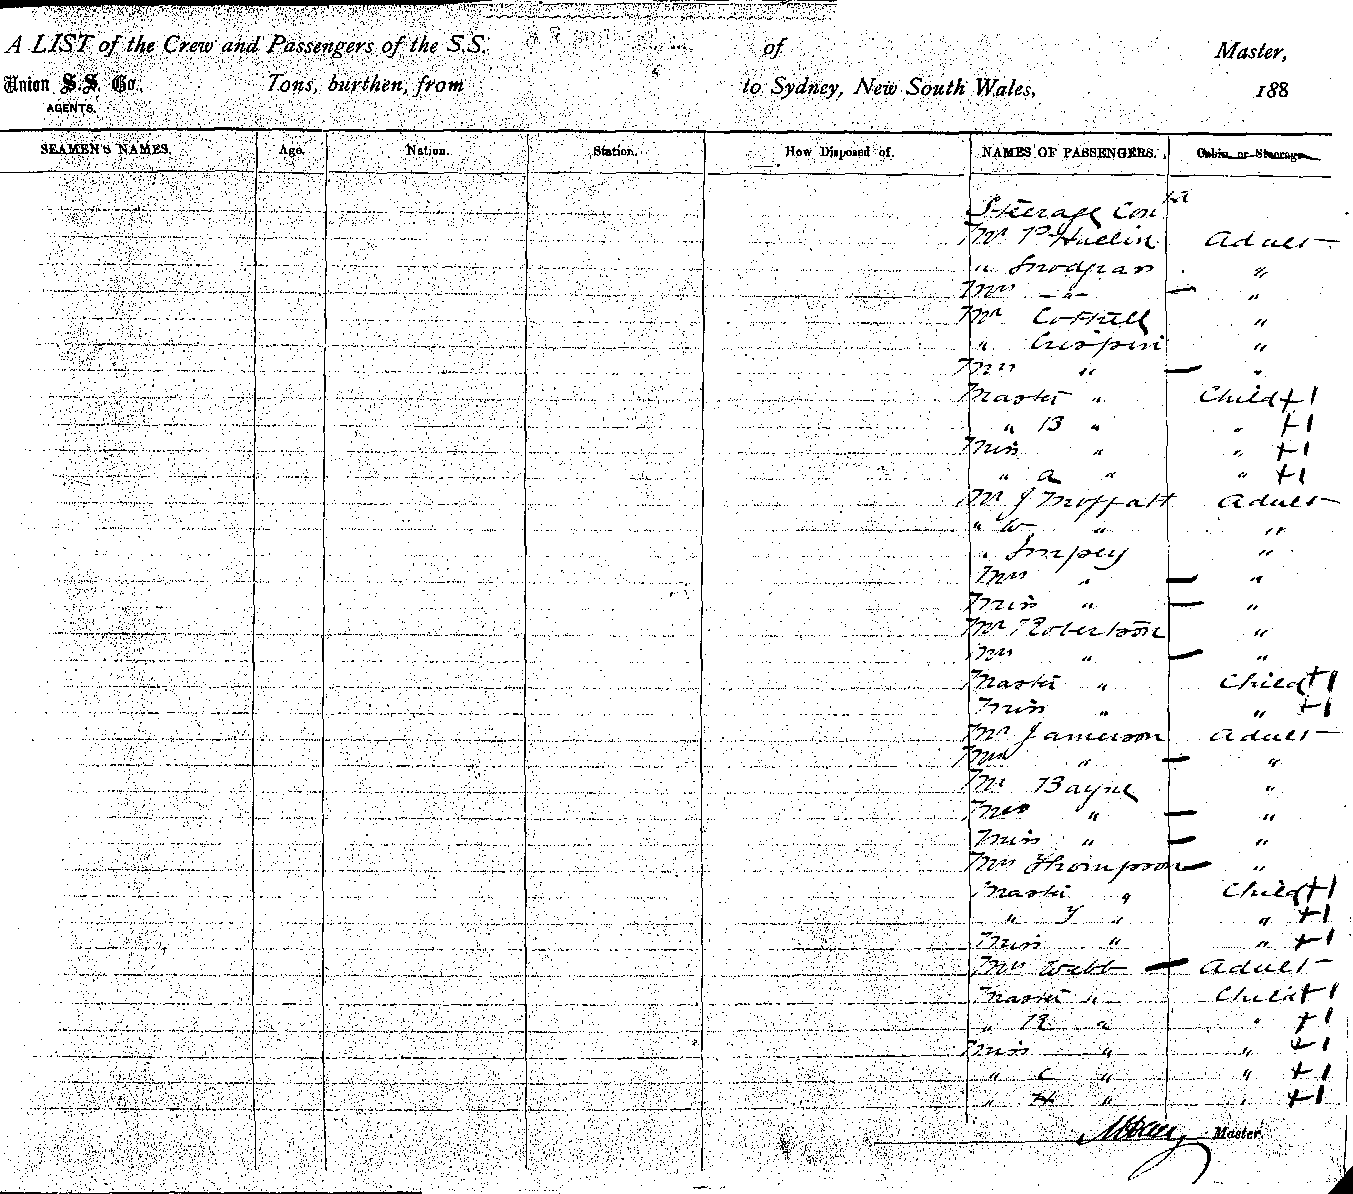 A LIST of the Crew and Passengers of the S.S. of Master,
Union S.S. Co., Tons, burthen, from to Sydney, New South Wales, 188
AGENTS.
SEAMEN'S NAMES. Age. Nation. Station. How Disposed of. NAMES OF PASSENGERS. Cabin or Steerage
Steerage Con
Mr P Huelin Adult
" Snodgrass "
Mrs — " — — "
Mr Cottrell "
" Crispin "
Mrs " — "
Master " Child +1
" B " " +1
Miss " " +1
" A " " +1
Mr J Moffatt Adult
" W " "
" Impey "
Mrs " — "
Miss " — "
Mr Robertson "
Mrs " — "
Master " Child +1
Miss " " +1
Mr Jamerson Adult
Mrs " — "
Mr Bayne "
Mrs " — "
Miss " — "
Mrs Thompson — "
Master " Child +1
" Y " " +1
Miss " " +1
Mrs Webb — Adult
Master " Child +1
" R " " +1
Miss " " +1
" C " " +1
" H " " +1
Master.